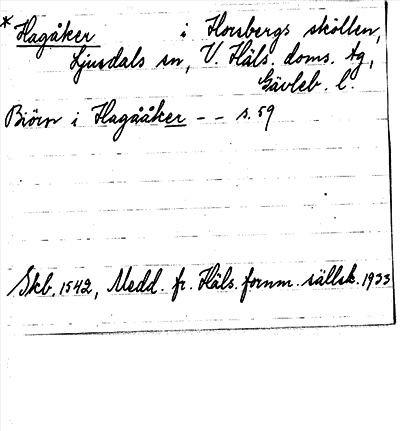 * Hagåker i Horsbergs sköllen,
Ljusdals sn, V. Häls. doms. tg,
Gävleb. l.
Biörn i Hagååker - - s. 59
Skb. 1542, Medd. fr. Häls. fornm. sällsk. 1933